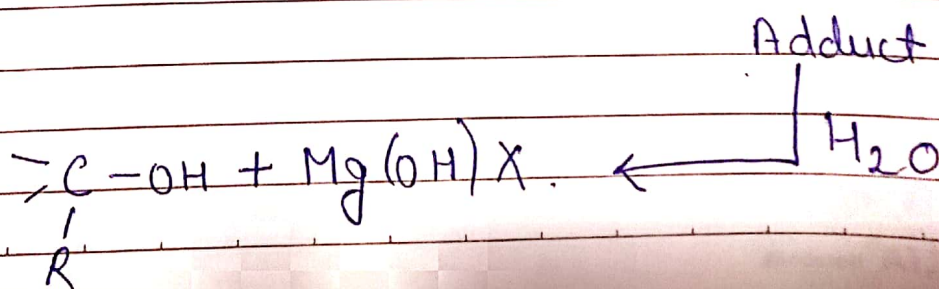 Adduct
H2O
>C-OH + Mg(OH)X.
R